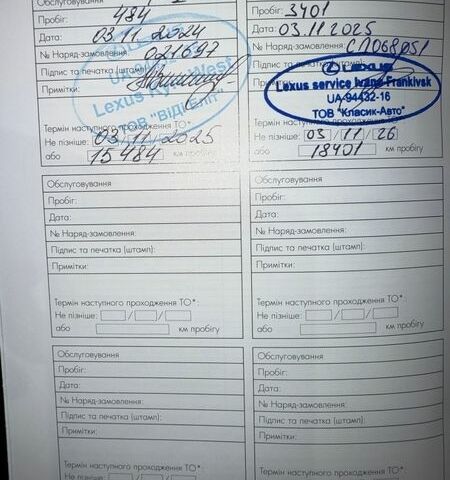 Обслуговування
Пробіг: 484
Дата: 03.11.2024
№ Наряд-замовлення: 021697
Підпис та печатка (штамп):
Примітки:
Lexus West
ТОВ "ВІДІ Еліт"
Термін наступного проходження ТО*:
Не пізніше: 03/11/2025
або 15484 км пробігу
Пробіг: 3401
Дата: 03.11.2025
№ Наряд-замовлення: СЛ068051
Підпис та печатка (штамп):
Примітки:
LEXUS
Lexus service Ivano-Frankivsk
UA-94432-16
ТОВ "Класик-Авто"
Термін наступного проходження ТО*:
Не пізніше: 03/11/26
або 18401 км пробігу
Обслуговування
Пробіг:
Дата:
№ Наряд-замовлення:
Підпис та печатка (штамп):
Примітки:
Термін наступного проходження ТО*:
Не пізніше: / /
або км пробігу
Обслуговування
Пробіг:
Дата:
№ Наряд-замовлення:
Підпис та печатка (штамп):
Примітки:
Термін наступного проходження ТО*:
Не пізніше: / /
або км пробігу
Обслуговування
Пробіг:
Дата:
№ Наряд-замовлення:
Підпис та печатка (штамп):
Примітки:
Термін наступного проходження ТО*:
Не пізніше:
Обслуговування
Пробіг:
Дата:
№ Наряд-замовлення:
Підпис та печатка (штамп):
Примітки:
Термін наступного проходження ТО*:
Не пізніше: